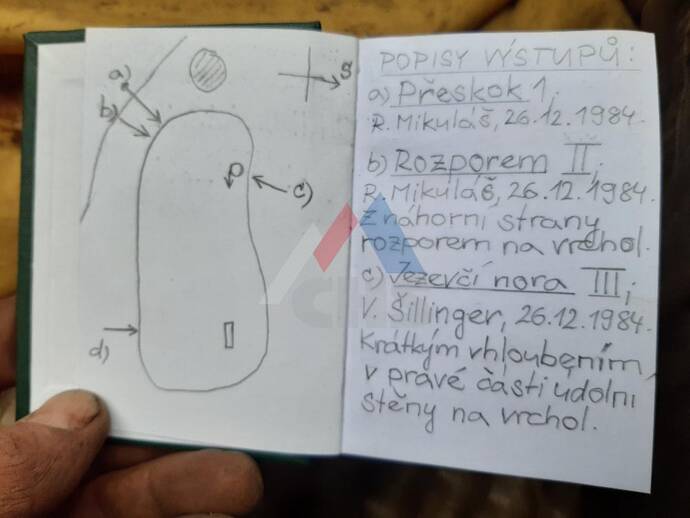 a)
b)
S
P
c)
d)
POPISY VÝSTUPŮ:
a) Přeskok 1,
R. Mikuláš, 26.12.1984.
b) Rozporem II;
R. Mikuláš, 26.12.1984.
Z náhorní strany
rozporem na vrchol.
c) Jezevčí nora III;
V. Šillinger, 26.12.1984.
Krátkým vhloubením,
v pravé části údolní
stěny na vrchol.